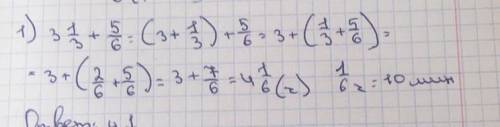 1) 3 1/3 + 5/6 = (3 + 1/3) + 5/6 = 3 + (1/3 + 5/6) =
= 3 + (2/6 + 5/6) = 3 + 7/6 = 4 1/6 (ч) 1/6 ч = 10 мин
Ответ: 4 1